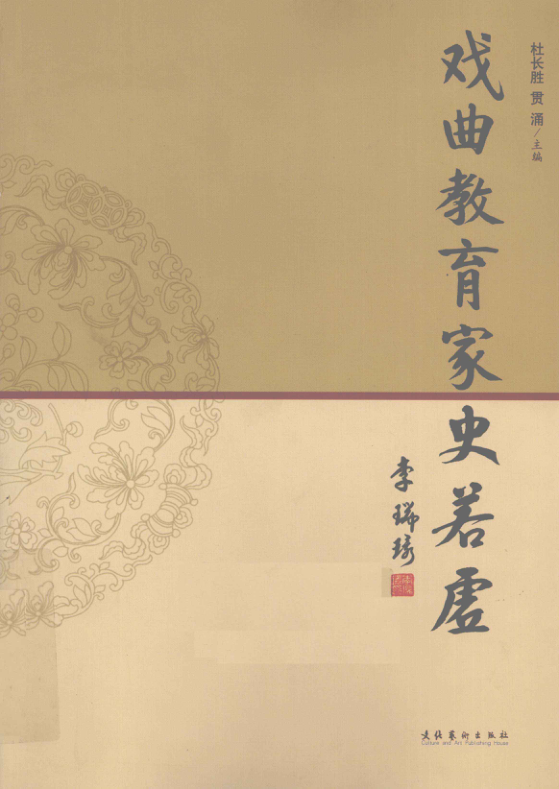 杜长胜 贯涌/主编
戏曲教育家史若虚
李瑞环
文化艺术出版社
Culture and Art Publishing House